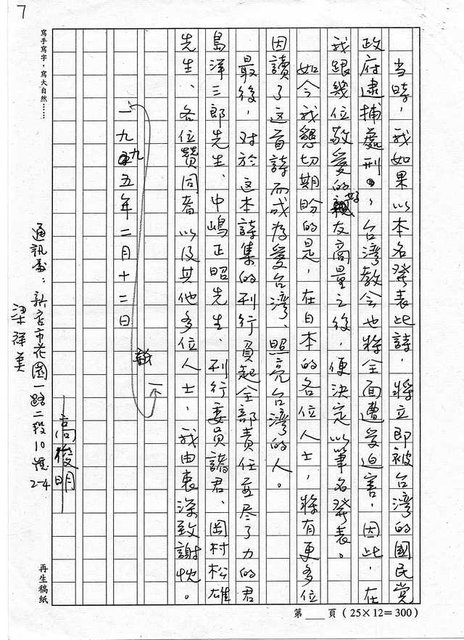 7
當時，我如果以本名發表此詩，將立即被台灣的國民黨
政府逮捕處刑，台灣教会也將全面遭受迫害，因此，在
我跟幾位敬愛的好友商量之後，便決定以筆名發表。
如今我懇切期盼的是，在日本的各位人士，將有更多位
因讀了這首詩而成為愛台灣、照亮台灣的人。
最後，对於這本詩集的刊行負起全部責任並尽了力的君
島洋三郎先生、中嶋正昭先生、刊行委員諸君、岡村松雄
先生、各位贊同者以及其他多位人士，我由衷深致謝忱。
一九九五年二月十二日
高俊明
通訊處：新店市花園一路二段10號
2-4
梁祥美
寫手寫字，寫大自然……
再生稿紙
第 頁（25×12＝300）